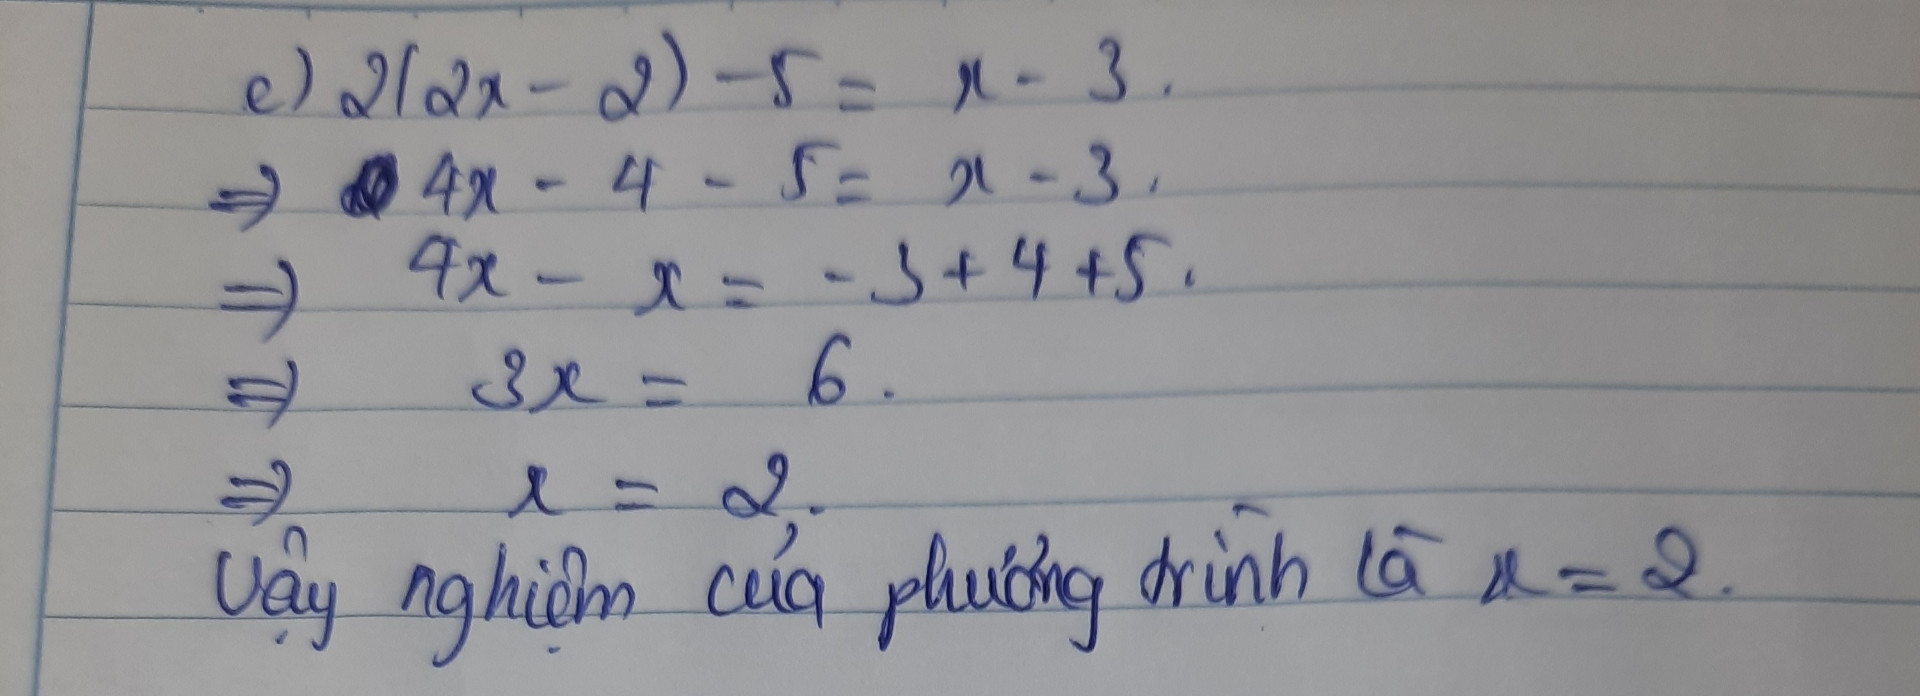 c) 2(2x - 2) - 5 = x - 3.
=> 4x - 4 - 5 = x - 3.
=> 4x - x = - 3 + 4 + 5.
=> 3x = 6.
=> x = 2.
Vậy nghiệm của phương trình là x = 2.